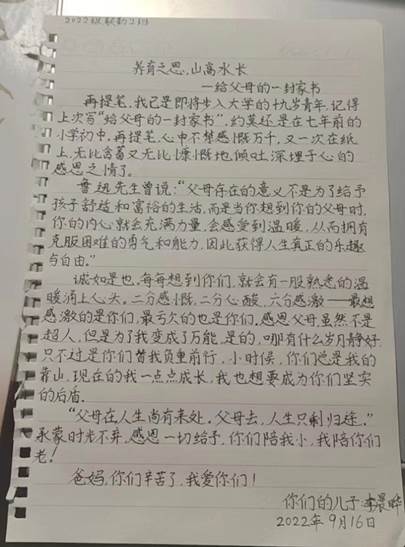 2022级
养育之恩，山高水长
—给父母的一封家书
再提笔，我已是即将步入大学的十九岁青年，记得
上次写“给父母的一封家书”，约莫还是在七年前的
小学初中，再提笔，心中不禁感慨万千，又一次在纸
上，无比含蓄又无比慷慨地，倾吐，深埋于心的
感恩之情了。
鲁迅先生曾说：“父母存在的意义不是为了给予
孩子舒适和富裕的生活，而是当你想到你的父母时，
你的内心就会充满力量，会感受到温暖，从而拥有
克服困难的勇气和能力，因此获得人生真正的乐趣
与自由。”
诚如是也，每每想到你们，就会有一股熟悉的温
暖涌上心头。二分感慨，二分心酸，六分感激——最想
感激的是你们，最亏欠的也是你们，感恩父母，虽然不是
超人，但是为了我变成了万能，是的，哪有什么岁月静好，
只不过是你们替我负重前行，小时候，你们总是我的
靠山，现在的我一点点成长，我也想要成为你们坚实
的后盾。
“父母在人生尚有来处，父母去，人生只剩归途。”
承蒙时光不弃，感恩一切给予，你们陪我小，我陪你们
老！
爸妈，你们辛苦了，我爱你们！
你们的儿子 李晨晔
2022年9月16日